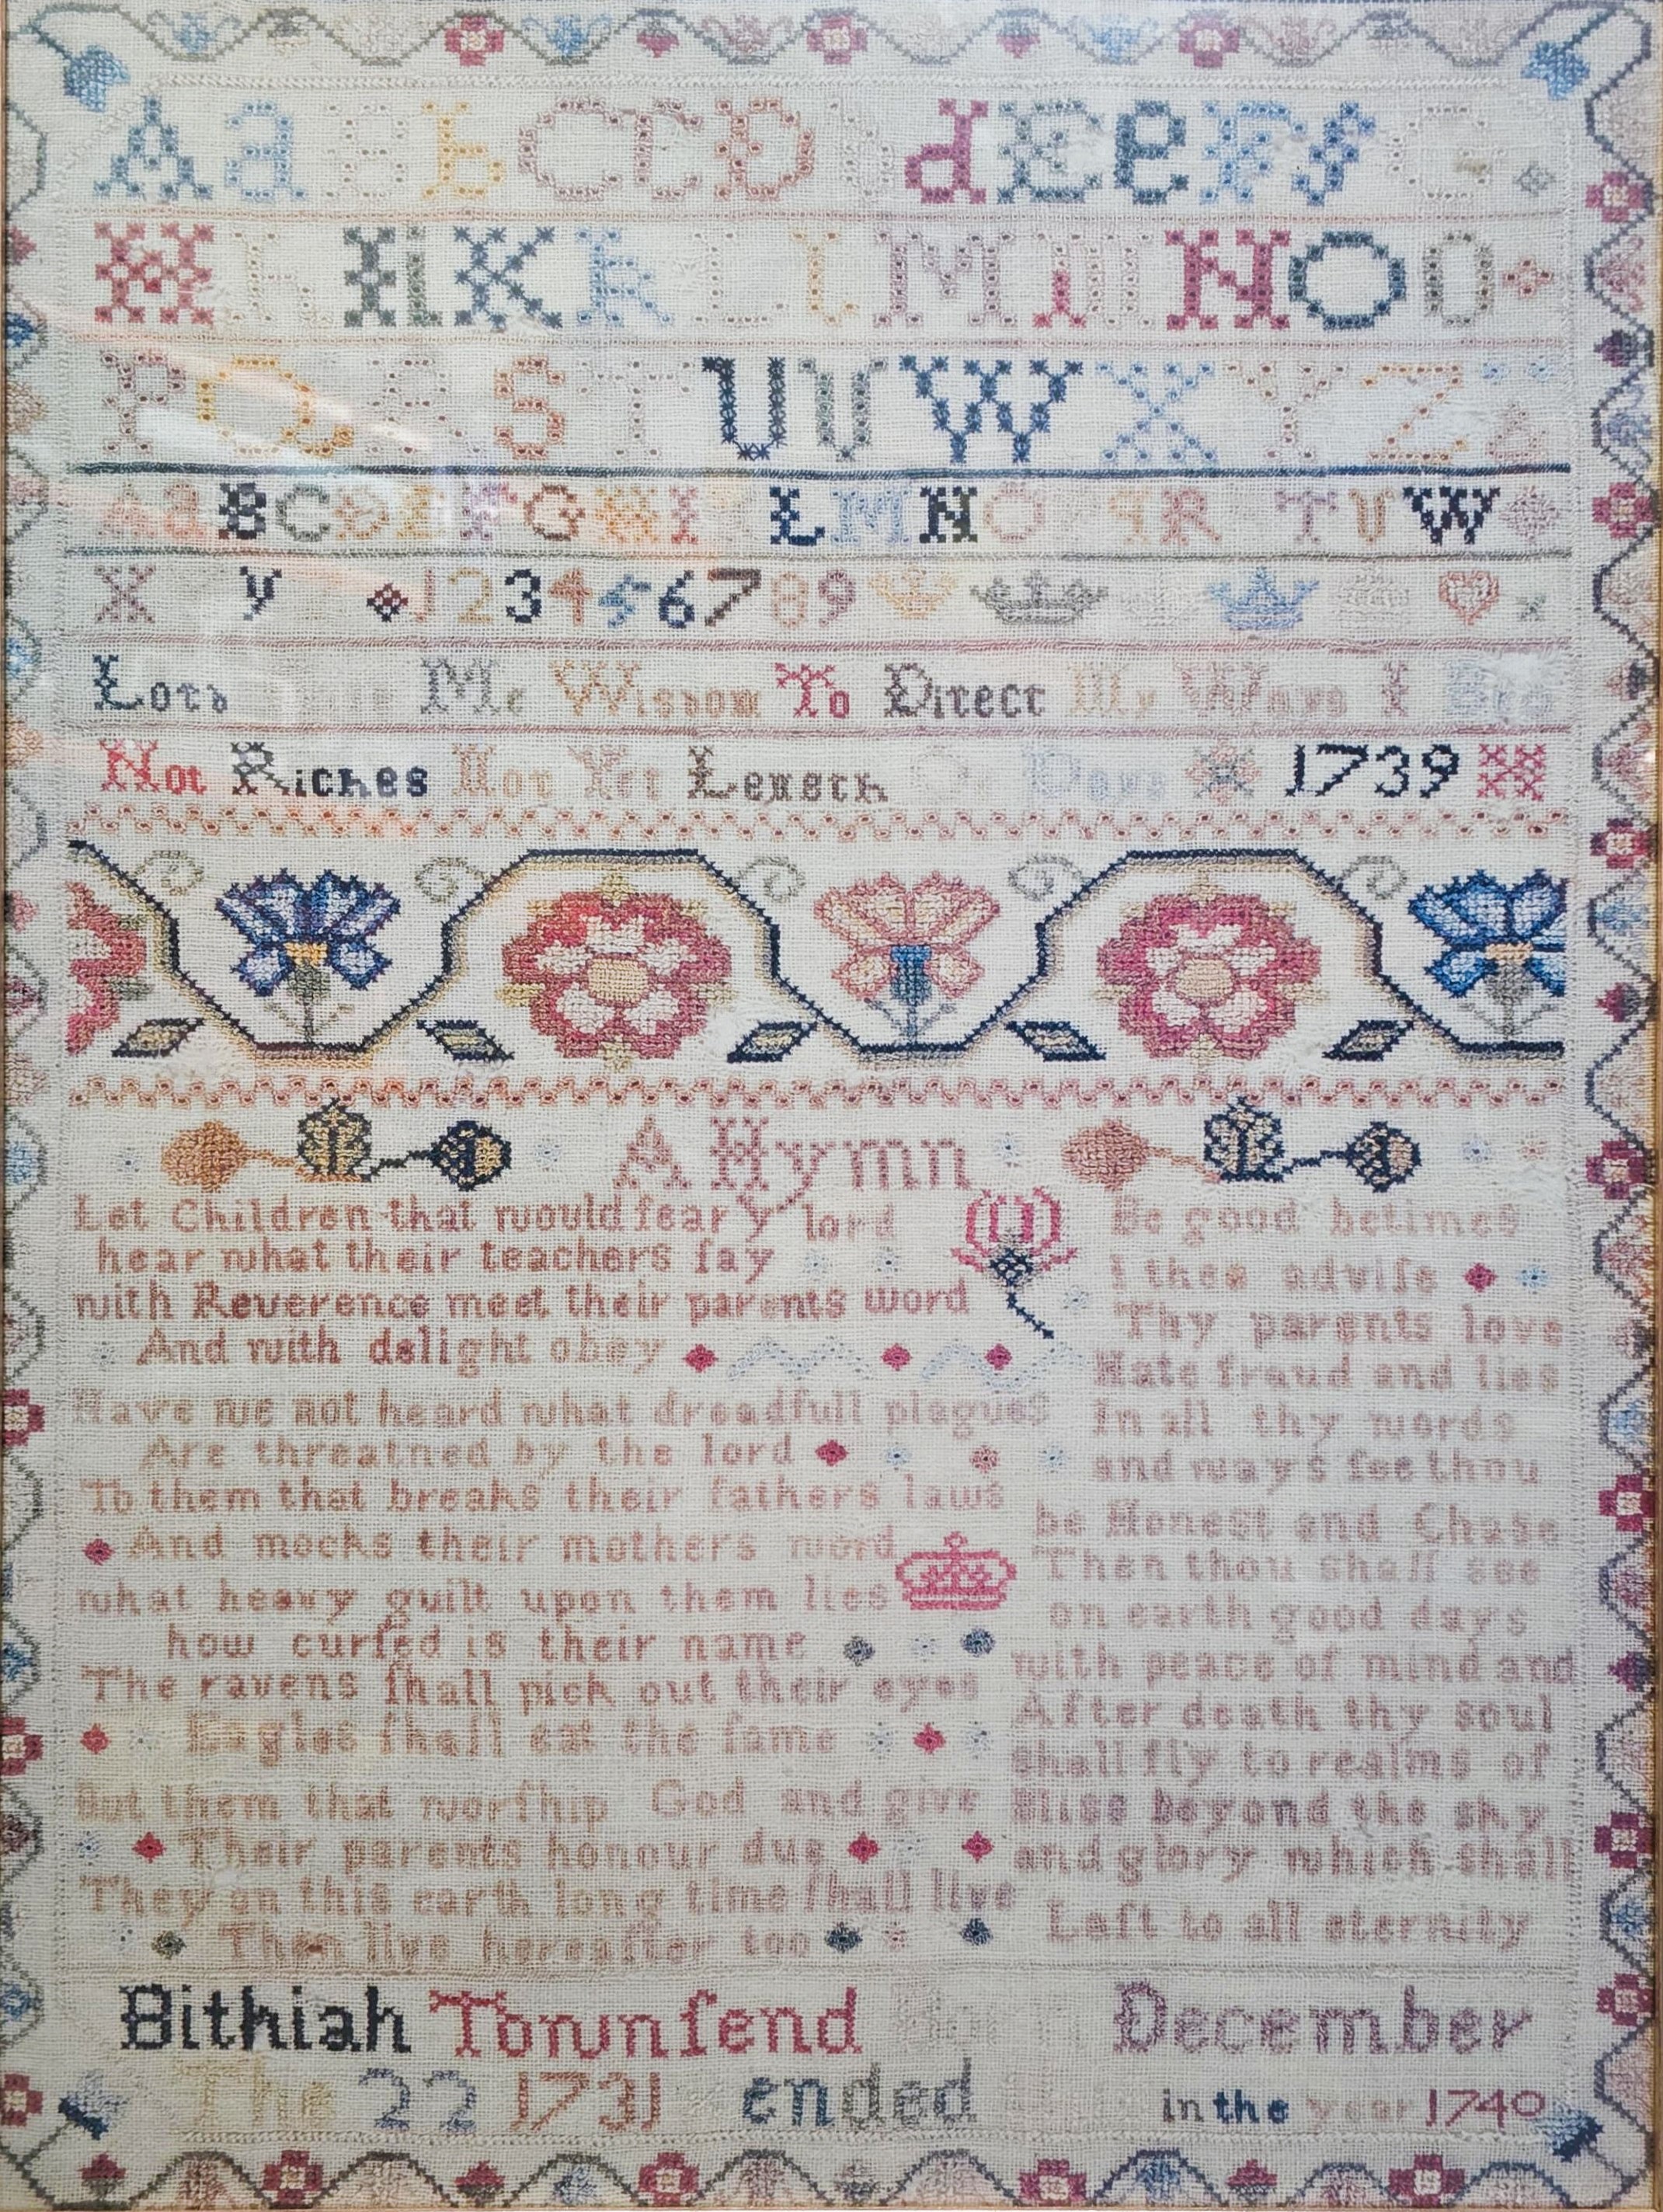 A a B b C c D d E e F f G
H h H i K k L l M m N O o
P Q R S T U U W X Y Z
A a B C D E F G H I L M N O q R T U W
X y 1 2 3 4 5 6 7 8 9
Lord Give Me Wisdom To Direct My Ways I Beg
Not Riches Nor Yet Length Of Days 1739
A Hymn
Let Children that would fear y lord
hear what their teachers ſay
with Reverence meet their parents word
And with delight obey
Have we not heard what dreadfull plagues
Are threatned by the lord
To them that breaks their fathers laws
And mocks their mothers word
what heavy guilt upon them lies
how curſed is their name
The ravens ſhall pick out their eyes
Eagles ſhall eat the ſame
But them that worſhip God and give
Their parents honour due
They on this earth long time ſhall live
Then live hereafter too
Be good betimes
I thee adviſe
Thy parents love
Hate fraud and lies
In all thy words
and ways ſee thou
be Honest and Chase
Then thou shall see
on earth good days
with peace of mind and
After death thy soul
shall fly to realms of
Bliss beyond the sky
and glory which shall
Laſt to all eternity
Bithiah Townſend Born December
The 22 1731 ended in the year 1740